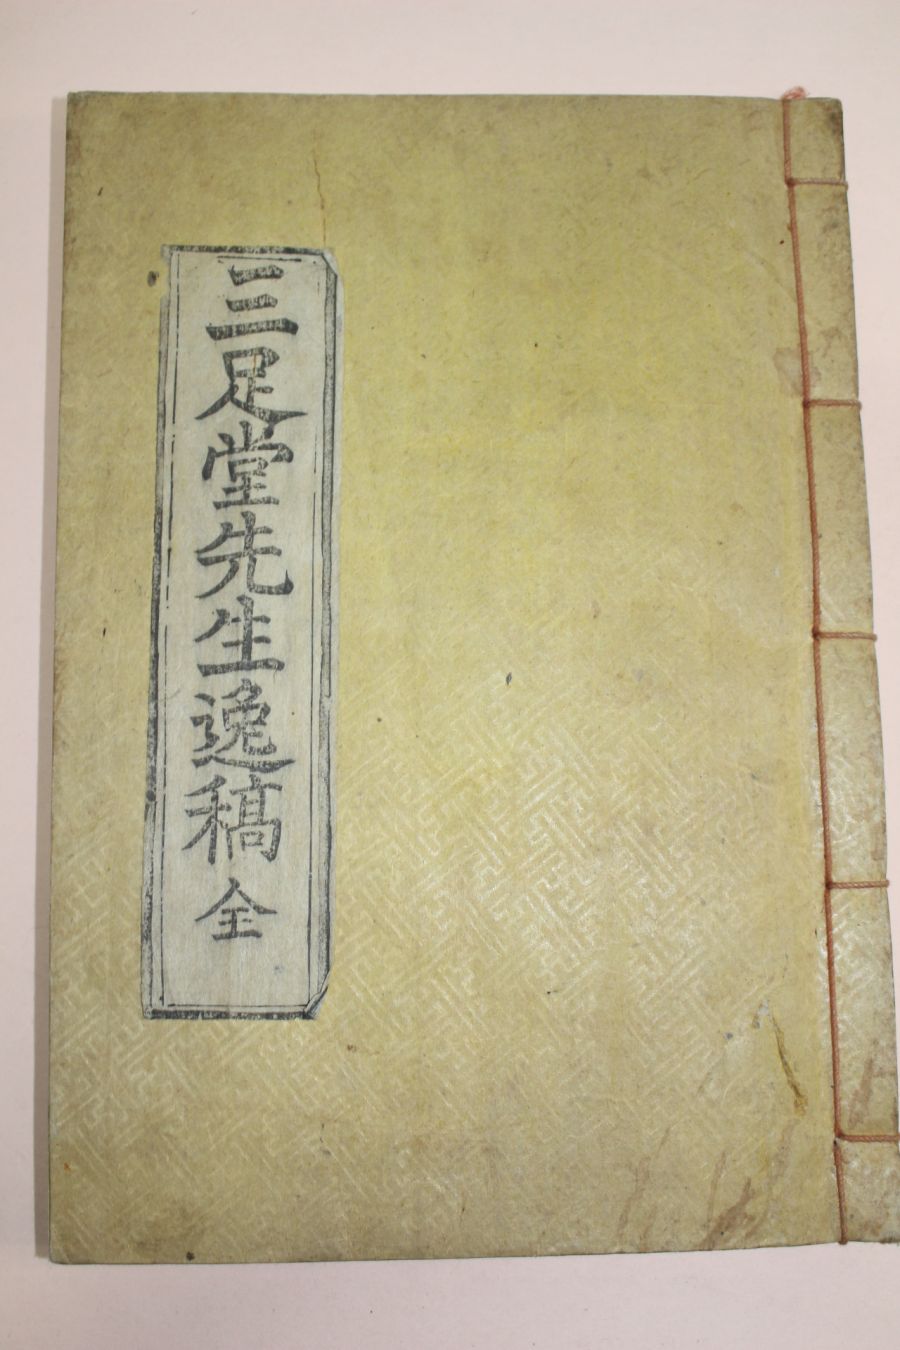 三足堂先生逸稿 全